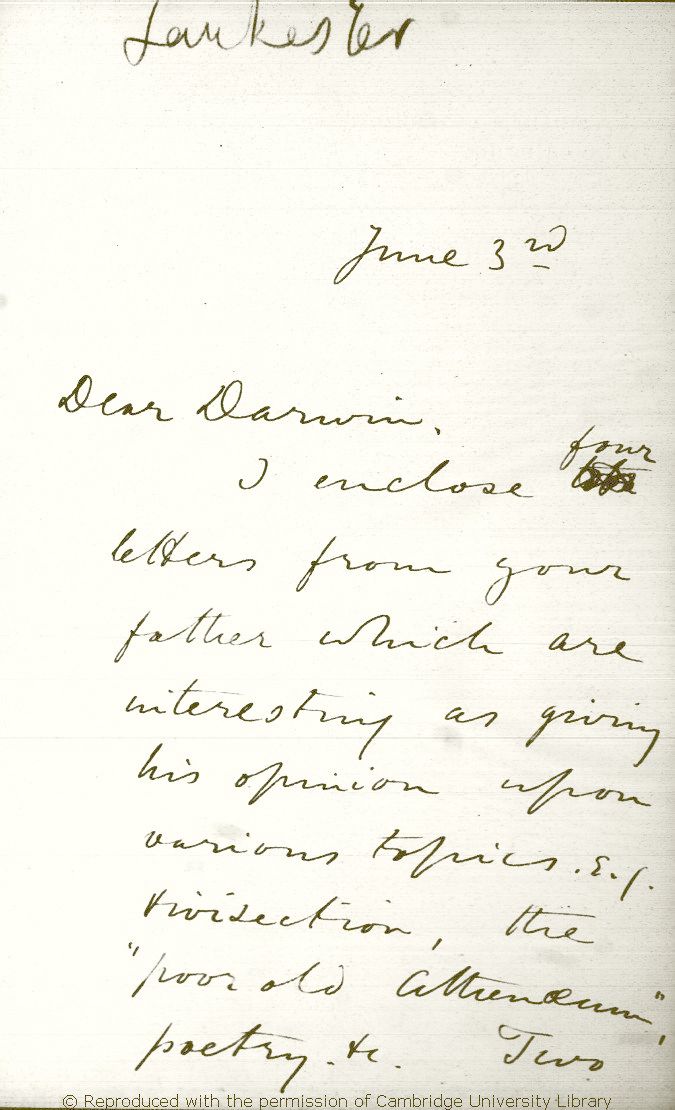 Lankester
June 3rd
Dear Darwin.
four
I enclose
letters from your
father which are
interesting as giving
his opinion upon
various topics. E.g.
vivisection, the
"poor old Athenæum",
poetry. &c. Two
© Reproduced with the permission of Cambridge University Library